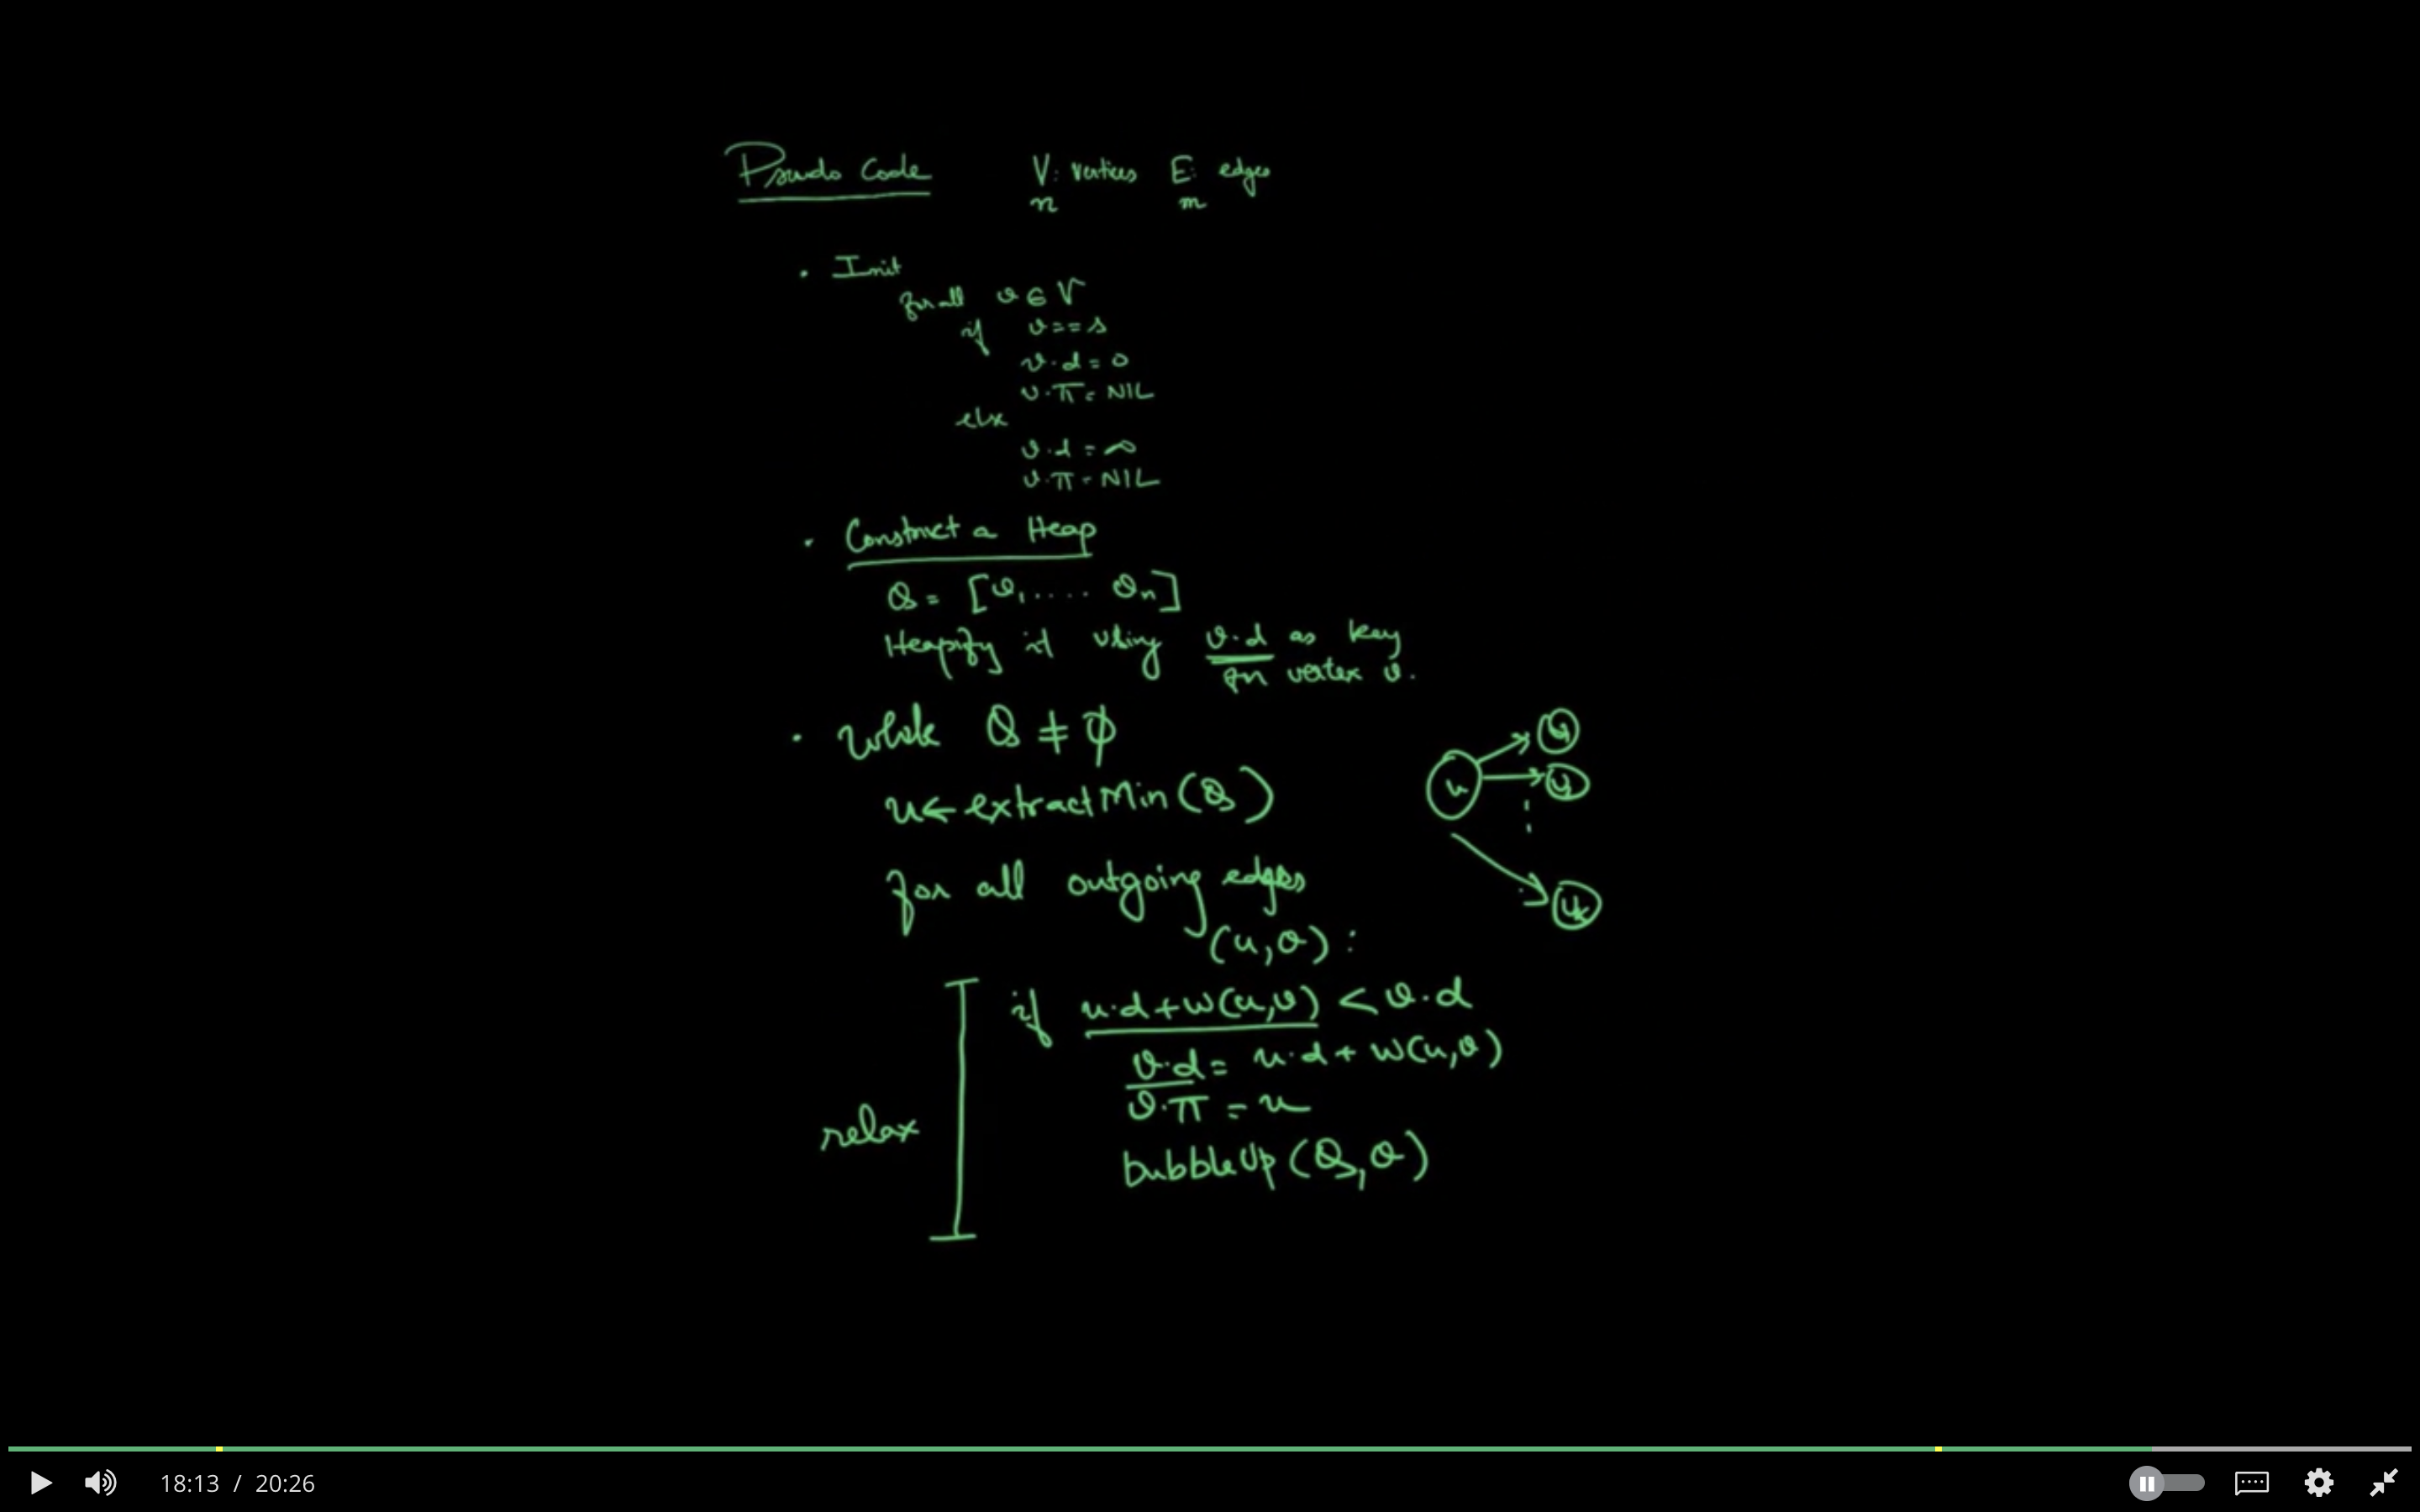 Pseudo Code V: vertices E: edges
n m
• Init
for all v ∈ V
if v == s
v.d = 0
v.π = NIL
else
v.d = ∞
v.π = NIL
• Construct a Heap
Q = [v₁ .... vₙ]
Heapify it using v.d as key
for vertex v.
• while Q ≠ φ
u ← extractMin(Q)
for all outgoing edges
(u,v):
if u.d + w(u,v) < v.d
v.d = u.d + w(u,v)
v.π = u
bubbleUp(Q,v)
relax
u
18:13 / 20:26